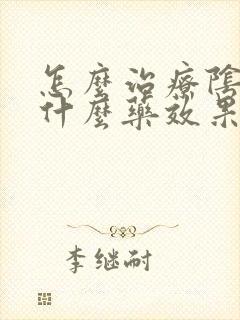 怎麼治療陰
什麼藥效果
李继耐